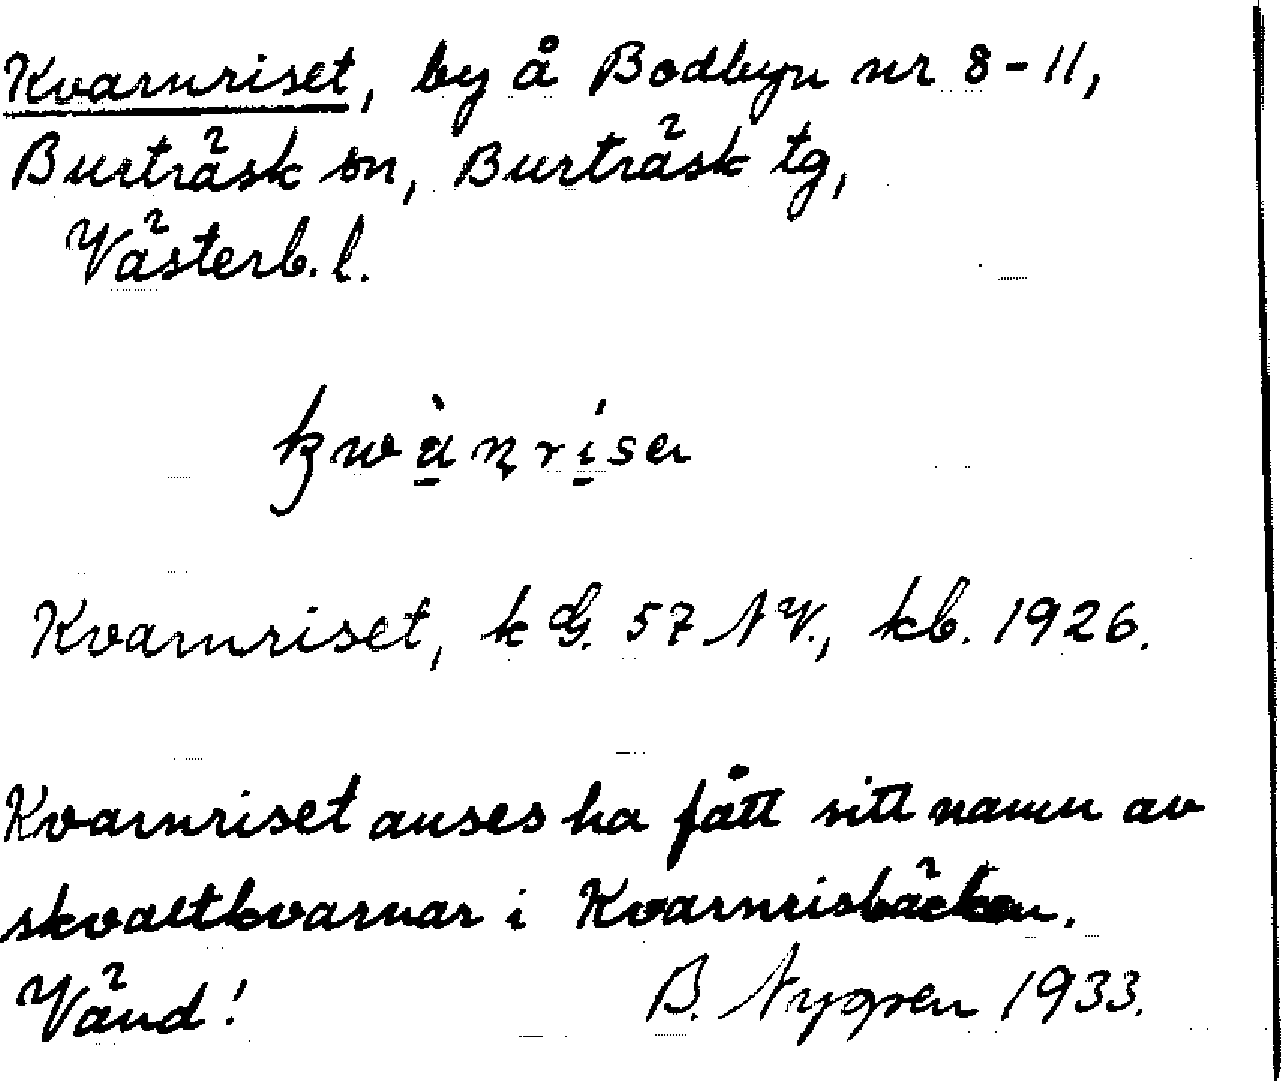 Kvarnriset, by å Bodbyn nr 8-11,
Burträsk sn, Burträsk tg,
Västerb. l.
Kvarnriset, k G. 57 NV., kb. 1926.
Kvarnriset anses ha fått sitt namn av
skvaltkvarnar i Kvarnrisbäcken.
Vänd! B. 1933.